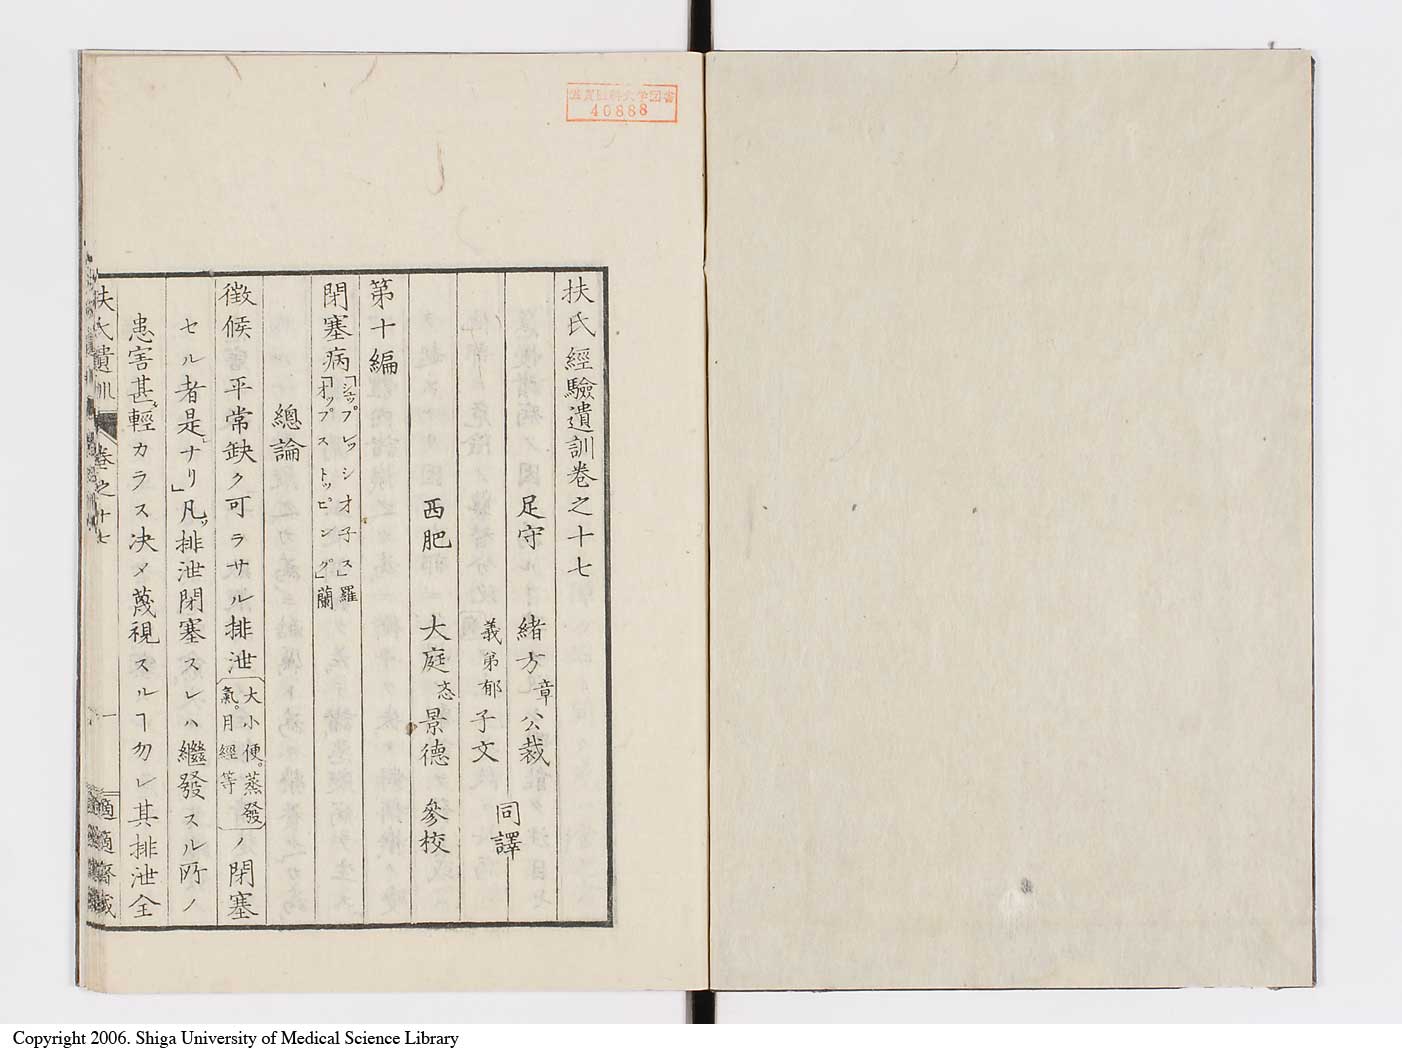 滋賀医科大学図書
40888
扶氏經驗遺訓卷之十七
足守 緒方章公裁
義弟郁子文
同譯
西肥 大庭忞景德 參校
第十編
閉塞病「シュップレッシオ子ス」羅「オップストッピング」蘭
總論
徵候 平常缺ク可ラサル排泄大小便。蒸發氣。月經等ノ閉塞
セル者是ナリ」凡ソ排泄閉塞スレハ繼發スル所ノ
患害甚タ輕カラス決メ蔑視スルヿ勿レ其排泄全
扶氏遺訓 卷之十七 一 適適齋藏
Copyright 2006. Shiga University of Medical Science Library